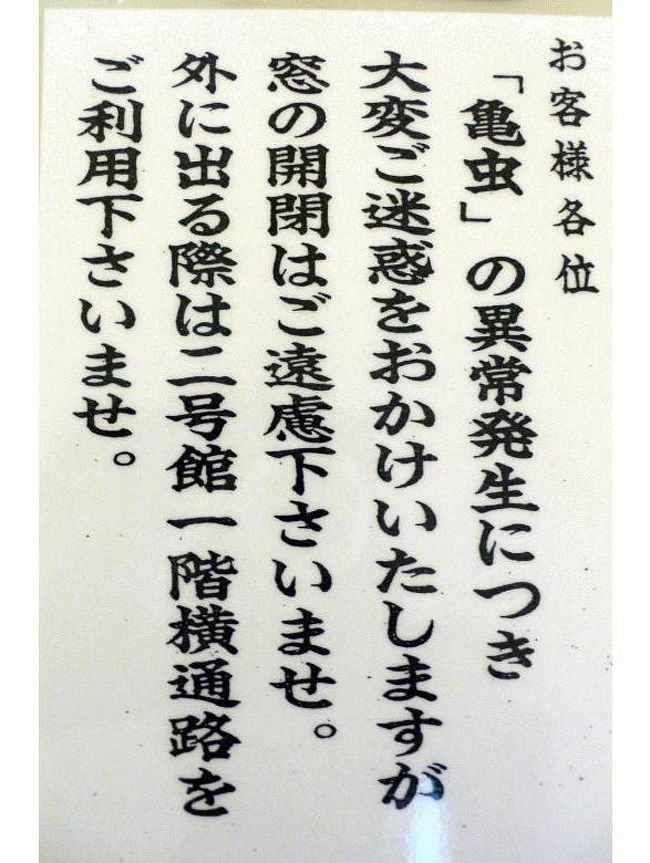 お客様各位
「亀虫」の異常発生につき
大変ご迷惑をおかけいたしますが
窓の開閉はご遠慮下さいませ。
外に出る際は二号館一階横通路を
ご利用下さいませ。